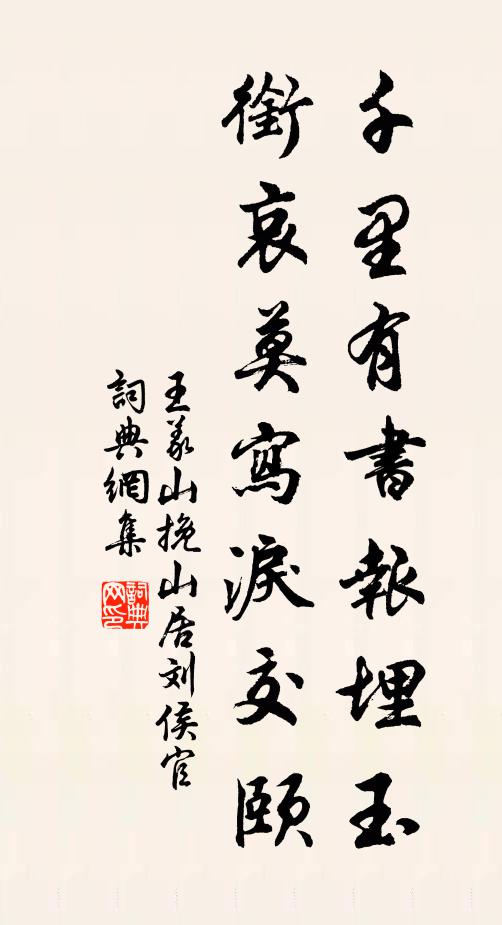 千里有書報埋玉
銜哀莫寫淚交頤
王义山挽山居刘侯官
詞典網集
詞典网印